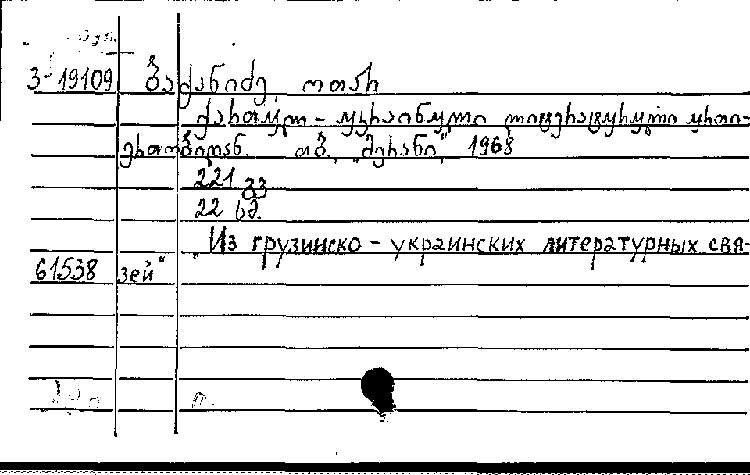 3-19109 ბაქანიძე ოთარ
ქართულ-უკრაინული ლიტერატურული ურთი-
ერთობიდან. თბ., „მერანი", 1968
221 გვ
22 სმ.
„Из грузинско-украинских литературных свя-
61538 зей"